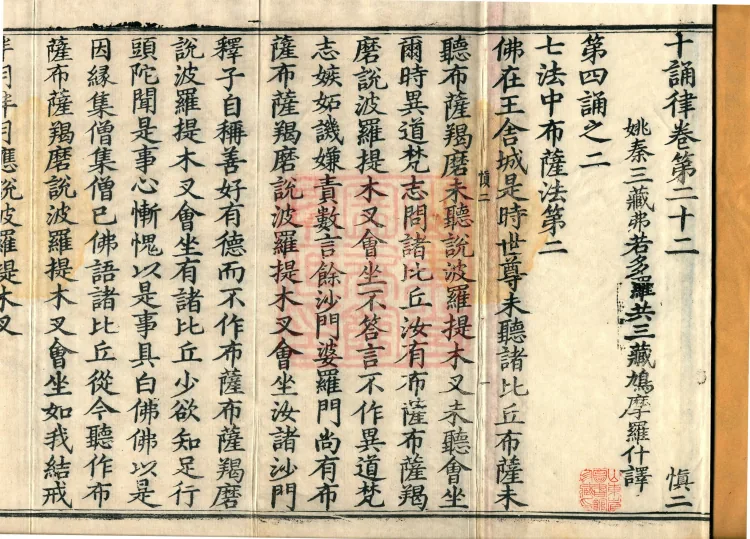 十誦律卷第二十二 慎二
姚秦三藏弗若多羅共三藏鳩摩羅什譯
第四誦之二
七法中布薩法第二
佛在王舍城是時世尊未聽諸比丘布薩未
慎二
聽布薩羯磨未聽說波羅提木叉未聽會坐
爾時異道梵志問諸比丘汝有布薩布薩羯
磨說波羅提木叉會坐不答言不作異道梵
志嫉妬譏嫌責數言餘沙門婆羅門尚有布
薩布薩羯磨說波羅提木叉會坐汝諸沙門
釋子自稱善好有德而不作布薩布薩羯磨
說波羅提木叉會坐有諸比丘少欲知足行
頭陀聞是事心慚愧以是事具白佛佛以是
因緣集僧集僧已佛語諸比丘從今聽作布
薩布薩羯磨說波羅提木叉會坐如我結戒
半月半月應說波羅提木叉